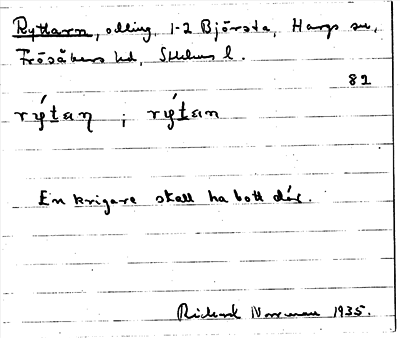 Ryttarn, odling, 1-2 Björsta, Hargs sn,
Frösåkers hd, Sthlms l.
82
rýtan ; rýtan
En krigare skall ha bott där.
Rickard Norrman 1935.